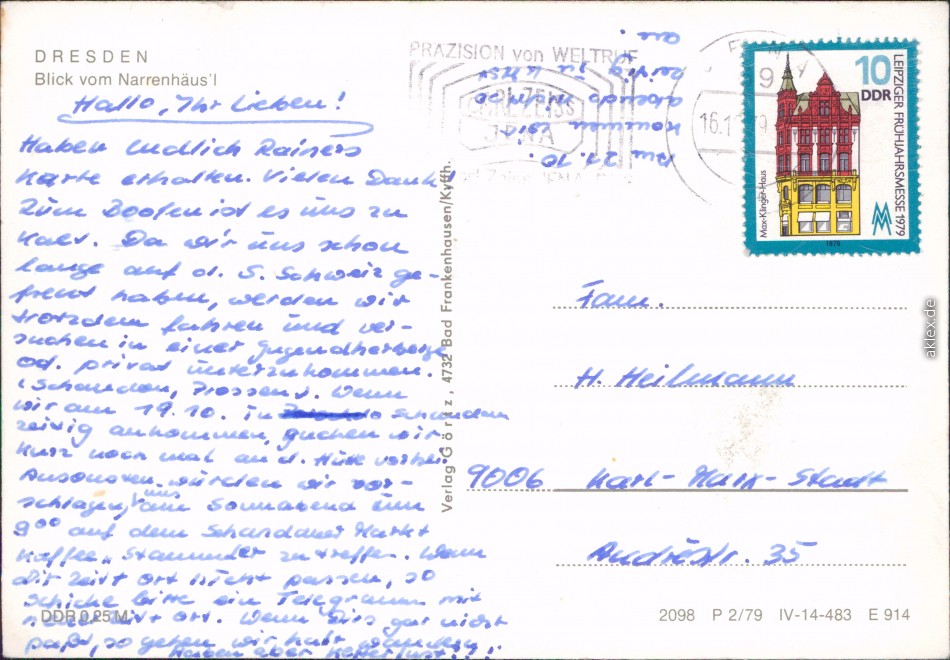 DRESDEN
Blick vom Narrenhäus'l
Hallo, Ihr Lieben!
Haben endlich Rainers
Karte erhalten. Vielen Dank!
Zum Boofen ist es uns zu
kalt. Da wir uns schon
lange auf d. S. Schweiz ge-
freut haben, werden wir
trotzdem fahren und ver-
suchen in einer Jugendherberge
od. privat unterzukommen.
(Schandau, Prossen). Wenn
wir am 19.10. in Schandau
zeitig ankommen, gucken wir
kurz noch mal an d. Hütte vorbei.
Ansonsten würden wir vor-
schlagen, uns am Sonnabend um
9⁰⁰ auf dem Schandauer Markt
Kaffee zu treffen. Wenn
Dir Zeit + Ort nicht passen, so
schicke bitte ein Telegramm mit
neuer Zeit + Ort. Wenn Dirs gar nicht
paßt, so gehen wir halt wandern
Haben aber Kletterlust!!!
DDR 0,25 M
Am 21.10.
kommen wir
abends
zurück
an.
PRÄZISION von WELTRUF
CARL ZEISS
JENA
16.1 79
9
10
DDR
LEIPZIGER FRÜHJAHRSMESSE 1979
Max-Klinger-Haus
1979
Verlag Görtz, 4732 Bad Frankenhausen/Kyffh.
Fam.
H. Heilmann
9006 Karl-Marx-Stadt
Andréstr. 35
2098 P 2/79 IV-14-483 E 914
aklex.de